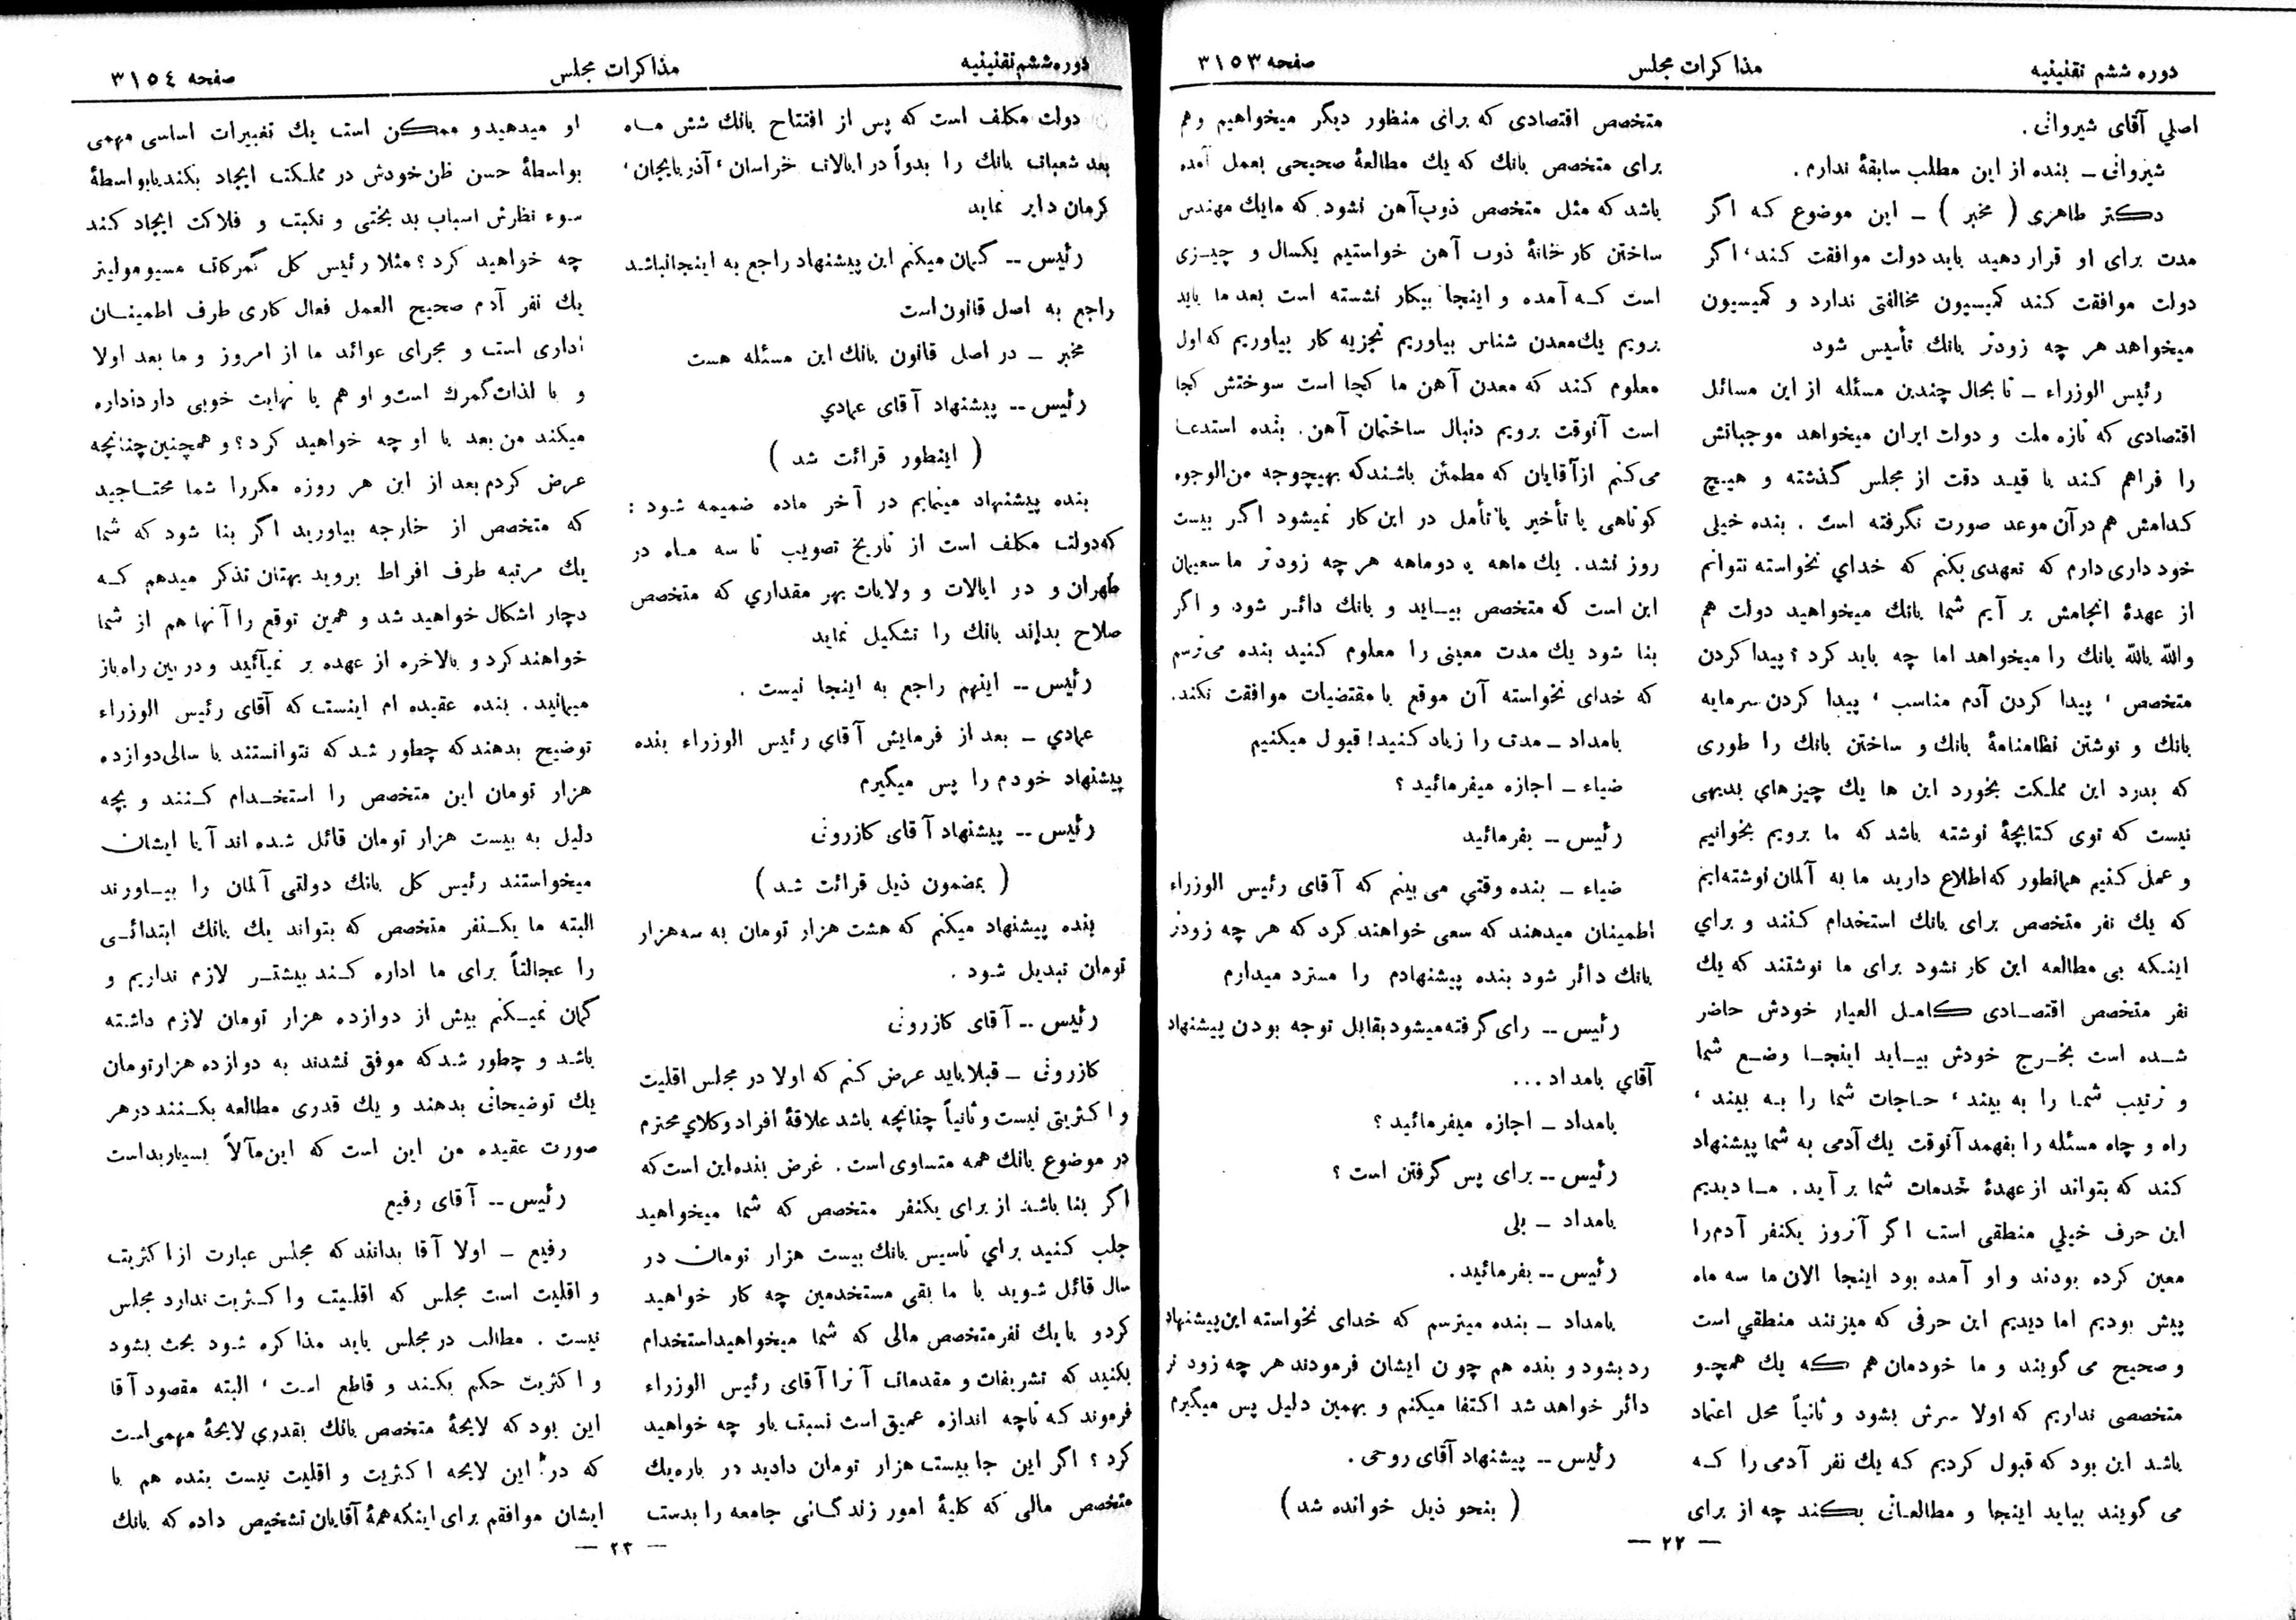 دوره ششم تقنینیه
مذاکرات مجلس
صفحه ۳۱۵۳
اصلي آقای شیروانی .
شیروانی ـ بنده از این مطلب سابقهٔ ندارم .
دکتر طاهری ( مخبر ) ـ این موضوع که اگر
مدت برای او قرار دهید باید دولت موافقت کند، اگر
دولت موافقت کند کمیسیون مخالفتی ندارد و کمیسیون
میخواهد هر چه زودتر بانك تأسیس شود
رئیس الوزراء ـ تا بحال چندین مسئله از این مسائل
اقتصادی که تازه ملت و دولت ایران میخواهد موجباتش
را فراهم کند با قید دقت از مجلس گذشته و هیچ
کدامش هم در آن موعد صورت نگرفته است . بنده خیلی
خود داری دارم که تعهدی بکنم که خداي نخواسته نتوانم
از عهدهٔ انجامش بر آیم شما بانك میخواهید دولت هم
والله بالله بانك را میخواهد اما چه باید کرد ؟ پیدا کردن
متخصص ، پیدا کردن آدم مناسب ، پیدا کردن سرمایه
بانك و نوشتن نظامنامهٔ بانك و ساختن بانك را طوری
که بدرد این مملکت بخورد این ها یك چیزهاي بدیهی
نیست که توی کتابچهٔ نوشته باشد که ما برویم بخوانیم
و عمل کنیم همانطور که اطلاع دارید ما به آلمان نوشته‌ایم
که یك نفر متخصص برای بانك استخدام کنند و براي
اینکه بی مطالعه این کار نشود برای ما نوشتند که یك
نفر متخصص اقتصادی کامل العیار خودش حاضر
شده است بخرج خودش بیاید اینجا وضع شما
و ترتیب شما را به بیند ، حاجات شما را به بیند ،
راه و چاه مسئله را بفهمد آنوقت یك آدمی به شما پیشنهاد
کند که بتواند از عهدهٔ خدمات شما بر آید . ما دیدیم
این حرف خیلي منطقی است اگر آنروز یکنفر آدم را
معین کرده بودند و او آمده بود اینجا الان ما سه ماه
پیش بودیم اما دیدیم این حرفی که میزنند منطقي است
و صحیح می گویند و ما خودمان هم که یك همچو
متخصصی نداریم که اولا سرش بشود و ثانیاً محل اعتماد
باشد این بود که قبول کردیم که یك نفر آدمی را که
می گویند بیاید اینجا و مطالعاتی بکند چه از برای
متخصص اقتصادی که برای منظور دیگر میخواهیم و هم
برای متخصص بانك که یك مطالعهٔ صحیحی بعمل آمده
باشد که مثل متخصص ذوب آهن نشود که ما یك مهندس
ساختن کار خانهٔ ذوب آهن خواستیم یکسال و چیزی
است که آمده و اینجا بیکار نشسته است بعد ما باید
برویم یك معدن شناس بیاوریم تجزیه کار بیاوریم که اول
معلوم کند که معدن آهن ما کجا است سوختش کجا
است آنوقت برویم دنبال ساختمان آهن . بنده استدعا
می کنم از آقایان که مطمئن باشند که بهیچوجه من الوجوه
کوتاهی یا تأخیر یا تأمل در این کار نمیشود اگر بیست
روز نشد . یك ماهه یا دو ماهه هر چه زودتر ما سعیمان
این است که متخصص بیاید و بانك دائر شود و اگر
بنا شود یك مدت معینی را معلوم کنید بنده می ترسم
که خدای نخواسته آن موقع با مقتضیات موافقت نکند.
بامداد ـ مدت را زیاد کنید! قبول میکنیم
ضیاء ـ اجازه میفرمائید ؟
رئیس ـ بفرمائید
ضیاء ـ بنده وقتي می بینم که آقای رئیس الوزراء
اطمینان میدهند که سعی خواهند کرد که هر چه زودتر
بانك دائر شود بنده پیشنهادم را مسترد میدارم
رئیس ـ رای گرفته میشود بقابل توجه بودن پیشنهاد
آقاي بامداد ...
بامداد ـ اجازه میفرمائید ؟
رئیس ـ برای پس گرفتن است ؟
بامداد ـ بلی
رئیس ـ بفرمائید .
بامداد ـ بنده میترسم که خدای نخواسته این پیشنهاد
رد بشود و بنده هم چون ایشان فرمودند هر چه زود تر
دائر خواهد شد اکتفا میکنم و بهمین دلیل پس میگیرم
رئیس ـ پیشنهاد آقای روحی .
( بنحو ذیل خوانده شد )
— ۲۲ —
دوره ششم تقنینیه
مذاکرات مجلس
صفحه ۳۱٥٤
دولت مکلف است که پس از افتتاح بانك شش ماه
بعد شعبات بانك را بدواً در ایالات خراسان ، آذربایجان ،
کرمان دایر نماید
رئیس ـ گمان میکنم این پیشنهاد راجع به اینجا نباشد
راجع به اصل قانون است
مخبر ـ در اصل قانون بانك این مسئله هست
رئیس ـ پیشنهاد آقای عمادي
( اینطور قرائت شد )
بنده پیشنهاد مینمایم در آخر ماده ضمیمه شود :
که دولت مکلف است از تاریخ تصویب تا سه ماه در
طهران و در ایالات و ولایات بهر مقداري که متخصص
صلاح بداند بانك را تشکیل نماید
رئیس ـ اینهم راجع به اینجا نیست .
عمادي ـ بعد از فرمایش آقاي رئیس الوزراء بنده
پیشنهاد خودم را پس میگیرم
رئیس ـ پیشنهاد آقای کازرونی
( بمضمون ذیل قرائت شد )
بنده پیشنهاد میکنم که هشت هزار تومان به سه هزار
تومان تبدیل شود .
رئیس ـ آقای کازرونی
کازرونی ـ قبلا باید عرض کنم که اولا در مجلس اقلیت
و اکثریتی نیست و ثانیاً چنانچه باشد علاقهٔ افراد وکلاي محترم
در موضوع بانك همه متساوی است . غرض بنده این است که
اگر بنا باشد از برای یکنفر متخصص که شما میخواهید
جلب کنید براي تاسیس بانك بیست هزار تومان در
سال قائل شوید با ما بقی مستخدمین چه کار خواهید
کرد و با یك نفر متخصص مالی که شما میخواهید استخدام
بکنید که تشریفات و مقدمات آنرا آقای رئیس الوزراء
فرموند که تاچه اندازه عمیق است نسبت باو چه خواهید
کرد ؟ اگر این جا بیست هزار تومان دادید در باره یك
متخصص مالی که کلیهٔ امور زندگانی جامعه را بدست
او میدهید و ممکن است یك تغییرات اساسی مهمی
بواسطهٔ حسن ظن خودش در مملکت ایجاد بکند یا بواسطهٔ
سوء نظرش اسباب بد بختی و نکبت و فلاکت ایجاد کند
چه خواهید کرد ؟ مثلا رئیس کل گمرکات مسیو مولیتر
یك نفر آدم صحیح العمل فعال کاری طرف اطمینان
اداری است و مجرای عوائد ما از امروز و ما بعد اولا
و با لذات گمرك است و او هم با نهایت خوبی دارد اداره
میکند من بعد با او چه خواهید کرد ؟ و همچنین چنانچه
عرض کردم بعد از این هر روزه مکررا شما محتاجید
که متخصص از خارجه بیاورید اگر بنا شود که شما
یك مرتبه طرف افراط بروید بهتان تذکر میدهم که
دچار اشکال خواهید شد و همین توقع را آنها هم از شما
خواهند کرد و بالاخره از عهده بر نمیآئید و در بین راه باز
میمانید . بنده عقیده ام اینست که آقای رئیس الوزراء
توضیح بدهند که چطور شد که نتوانستند با سالی دوازده
هزار تومان این متخصص را استخدام کنند و بچه
دلیل به بیست هزار تومان قائل شده اند آیا ایشان
میخواستند رئیس کل بانك دولتی آلمان را بیاورند
البته ما یکنفر متخصص که بتواند یك بانك ابتدائی
را عجالتاً برای ما اداره کند بیشتر لازم نداریم و
گمان نمیکنم بیش از دوازده هزار تومان لازم داشته
باشد و چطور شد که موفق نشدند به دوازده هزار تومان
یك توضیحاتی بدهند و یك قدری مطالعه بکنند در هر
صورت عقیده من این است که این مآلاً بسیار بد است
رئیس ـ آقای رفیع
رفیع ـ اولا آقا بدانند که مجلس عبارت از اکثریت
و اقلیت است مجلس که اقلیت و اکثریت ندارد مجلس
نیست . مطالب در مجلس باید مذاکره شود بحث بشود
و اکثریت حکم بکند و قاطع است ، البته مقصود آقا
این بود که لایحهٔ متخصص بانك بقدري لایحهٔ مهمی است
که در این لایحه اکثریت و اقلیت نیست بنده هم با
ایشان موافقم برای اینکه همهٔ آقایان تشخیص داده که بانك
— ۲۳ —